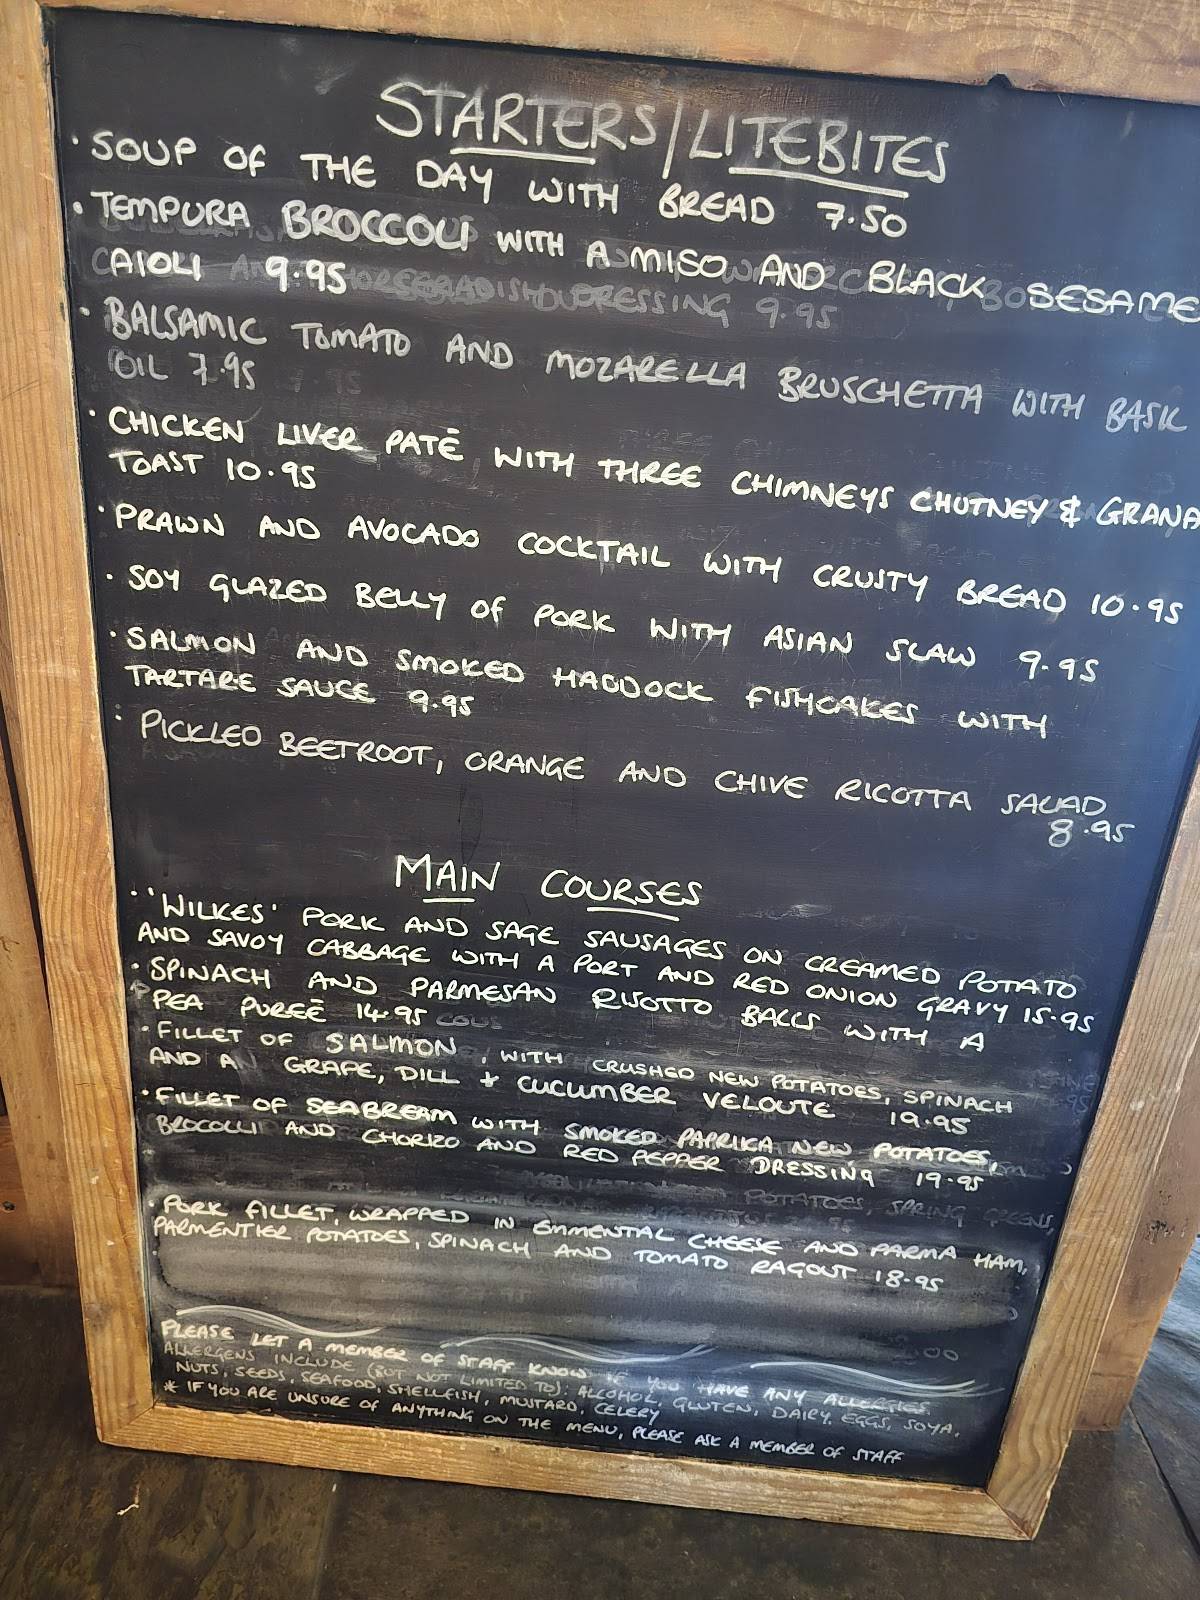 STARTERS/LITEBITES
· SOUP OF THE DAY WITH BREAD 7.50
· TEMPURA BROCCOLI WITH A MISO AND BLACK SESAME
AIOLI 9.95
· BALSAMIC TOMATO AND MOZARELLA BRUSCHETTA WITH BASIL
OIL 7.95
· CHICKEN LIVER PATÉ WITH THREE CHIMNEYS CHUTNEY & GRANA
TOAST 10.95
· PRAWN AND AVOCADO COCKTAIL WITH CRUSTY BREAD 10.95
· SOY GLAZED BELLY OF PORK WITH ASIAN SLAW 9.95
· SALMON AND SMOKED HADDOCK FISHCAKES WITH
TARTARE SAUCE 9.95
· PICKLED BEETROOT, ORANGE AND CHIVE RICOTTA SALAD
8.95
MAIN COURSES
· 'WILKES' PORK AND SAGE SAUSAGES ON CREAMED POTATO
AND SAVOY CABBAGE WITH A PORT AND RED ONION GRAVY 15.95
· SPINACH AND PARMESAN RISOTTO BALLS WITH A
PEA PUREÉ 14.95
· FILLET OF SALMON, WITH CRUSHED NEW POTATOES, SPINACH
AND A GRAPE, DILL + CUCUMBER VELOUTE 19.95
· FILLET OF SEABREAM WITH SMOKED PAPRIKA NEW POTATOES,
BROCOLLI AND CHORIZO AND RED PEPPER DRESSING 19.95
· PORK FILLET, WRAPPED IN EMMENTAL CHEESE AND PARMA HAM,
PARMENTIER POTATOES, SPINACH AND TOMATO RAGOUT 18.95
PLEASE LET A MEMBER OF STAFF KNOW IF YOU HAVE ANY ALLERGIES.
ALLERGENS INCLUDE (BUT NOT LIMITED TO): ALCOHOL, GLUTEN, DAIRY, EGGS, SOYA,
NUTS, SEEDS, SEAFOOD, SHELLFISH, MUSTARD, CELERY
* IF YOU ARE UNSURE OF ANYTHING ON THE MENU, PLEASE ASK A MEMBER OF STAFF